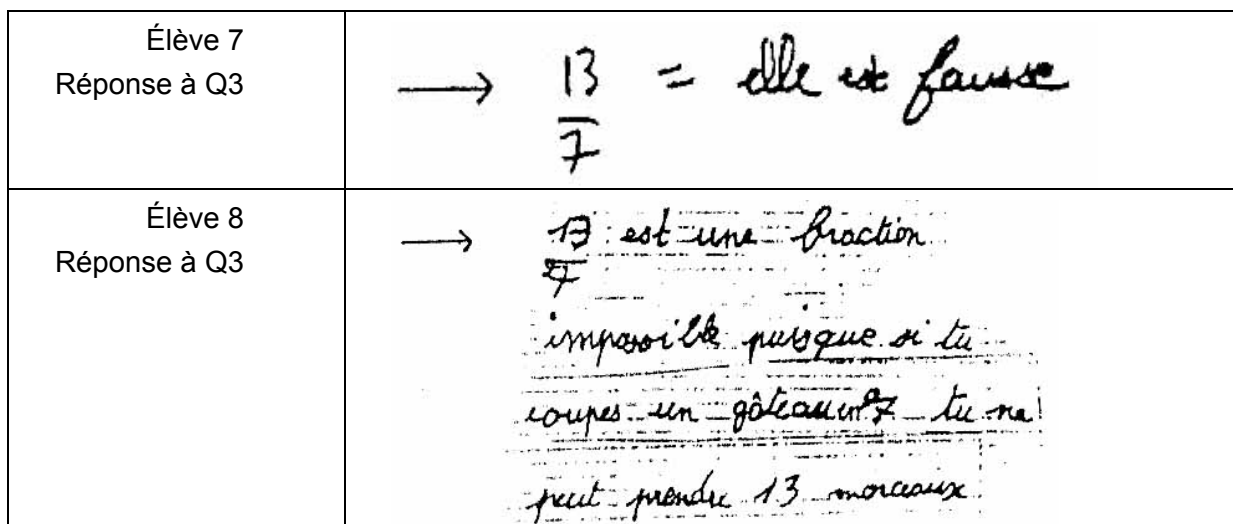 Élève 7
Réponse à Q3
→ 13/7 = elle est fausse
Élève 8
Réponse à Q3
→ 13/7 est une fraction
impossible puisque si tu
coupes un gâteau en 7 tu ne
peut prendre 13 morceaux.